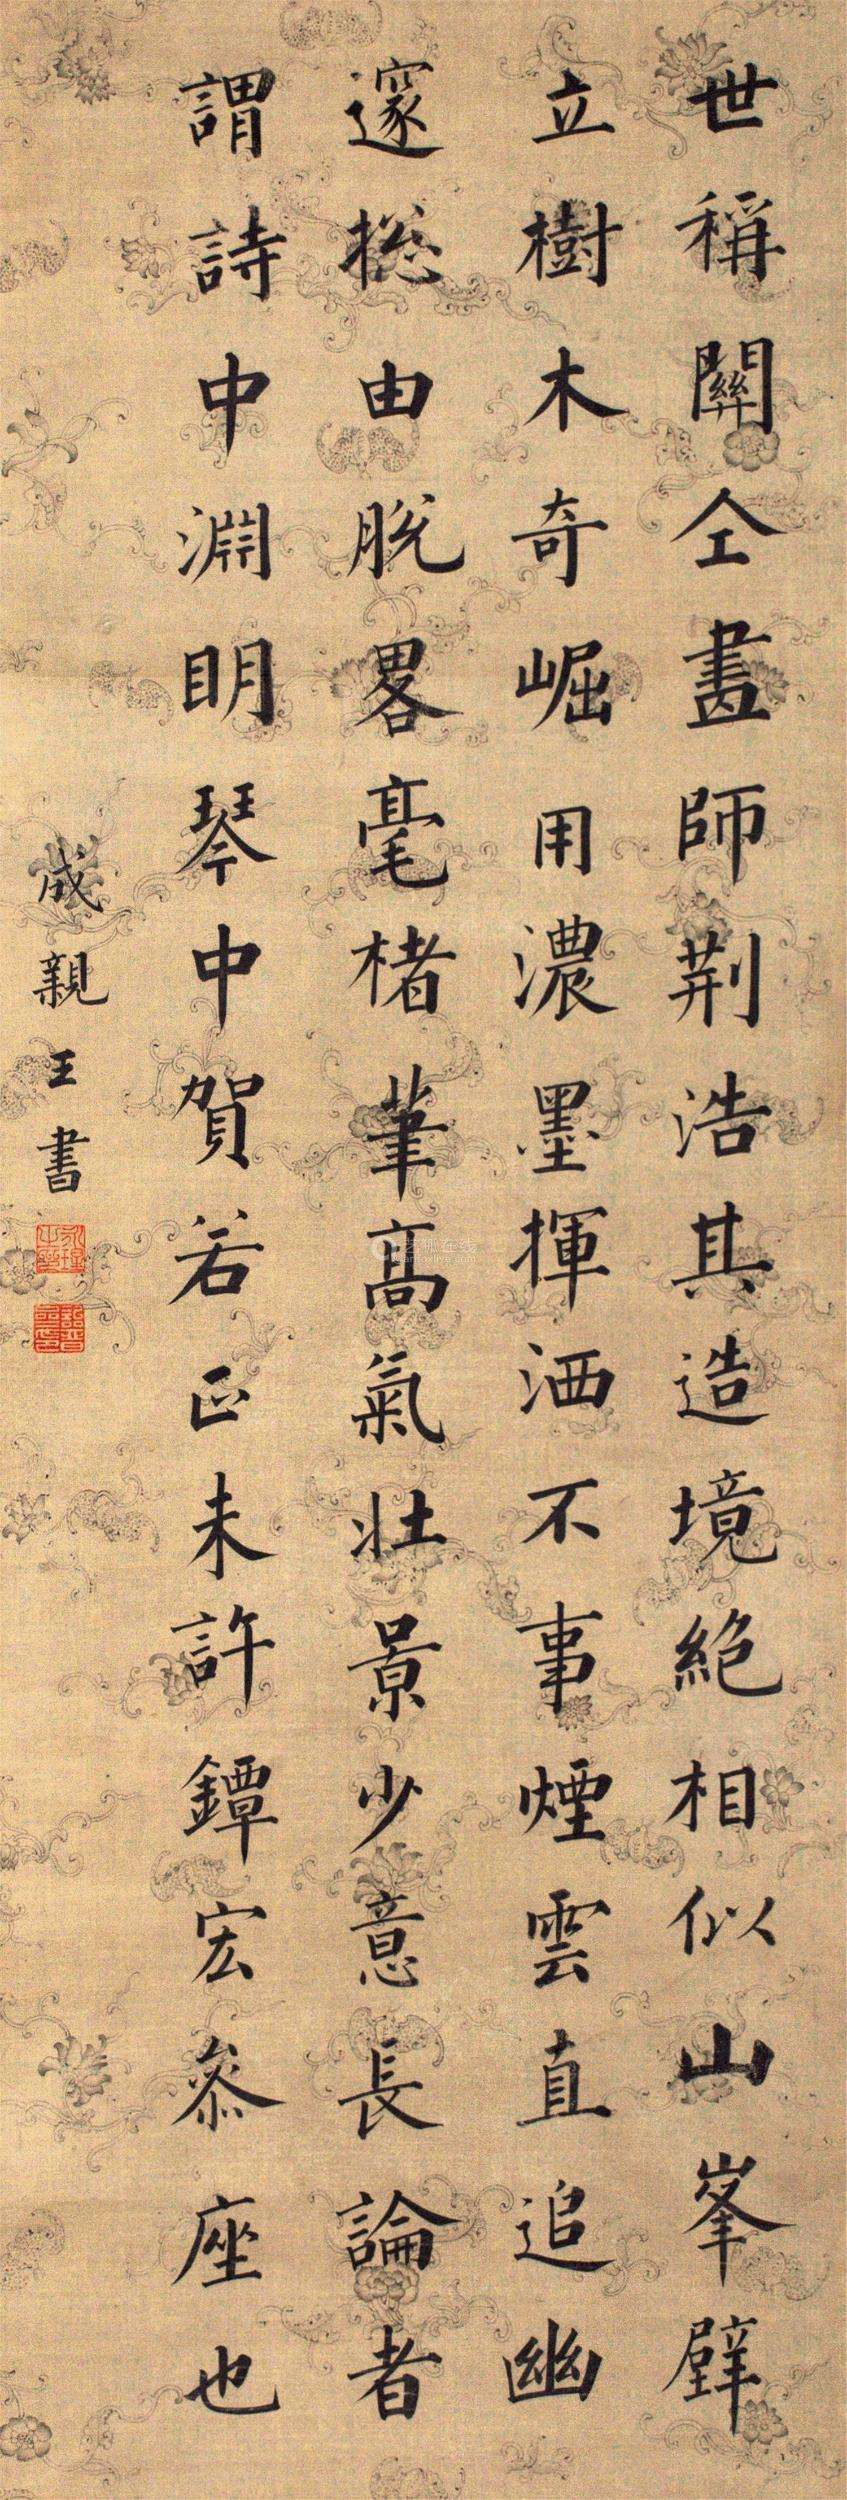 世稱關仝畫師荆浩其造境絶相似山峯壁
立樹木奇崛用濃墨揮洒不事煙雲直追幽
邃揔由脱畧毫楮筆高氣壯景少意長論者
謂詩中淵明琴中賀若正未許鐔宏叅座也
成親王書